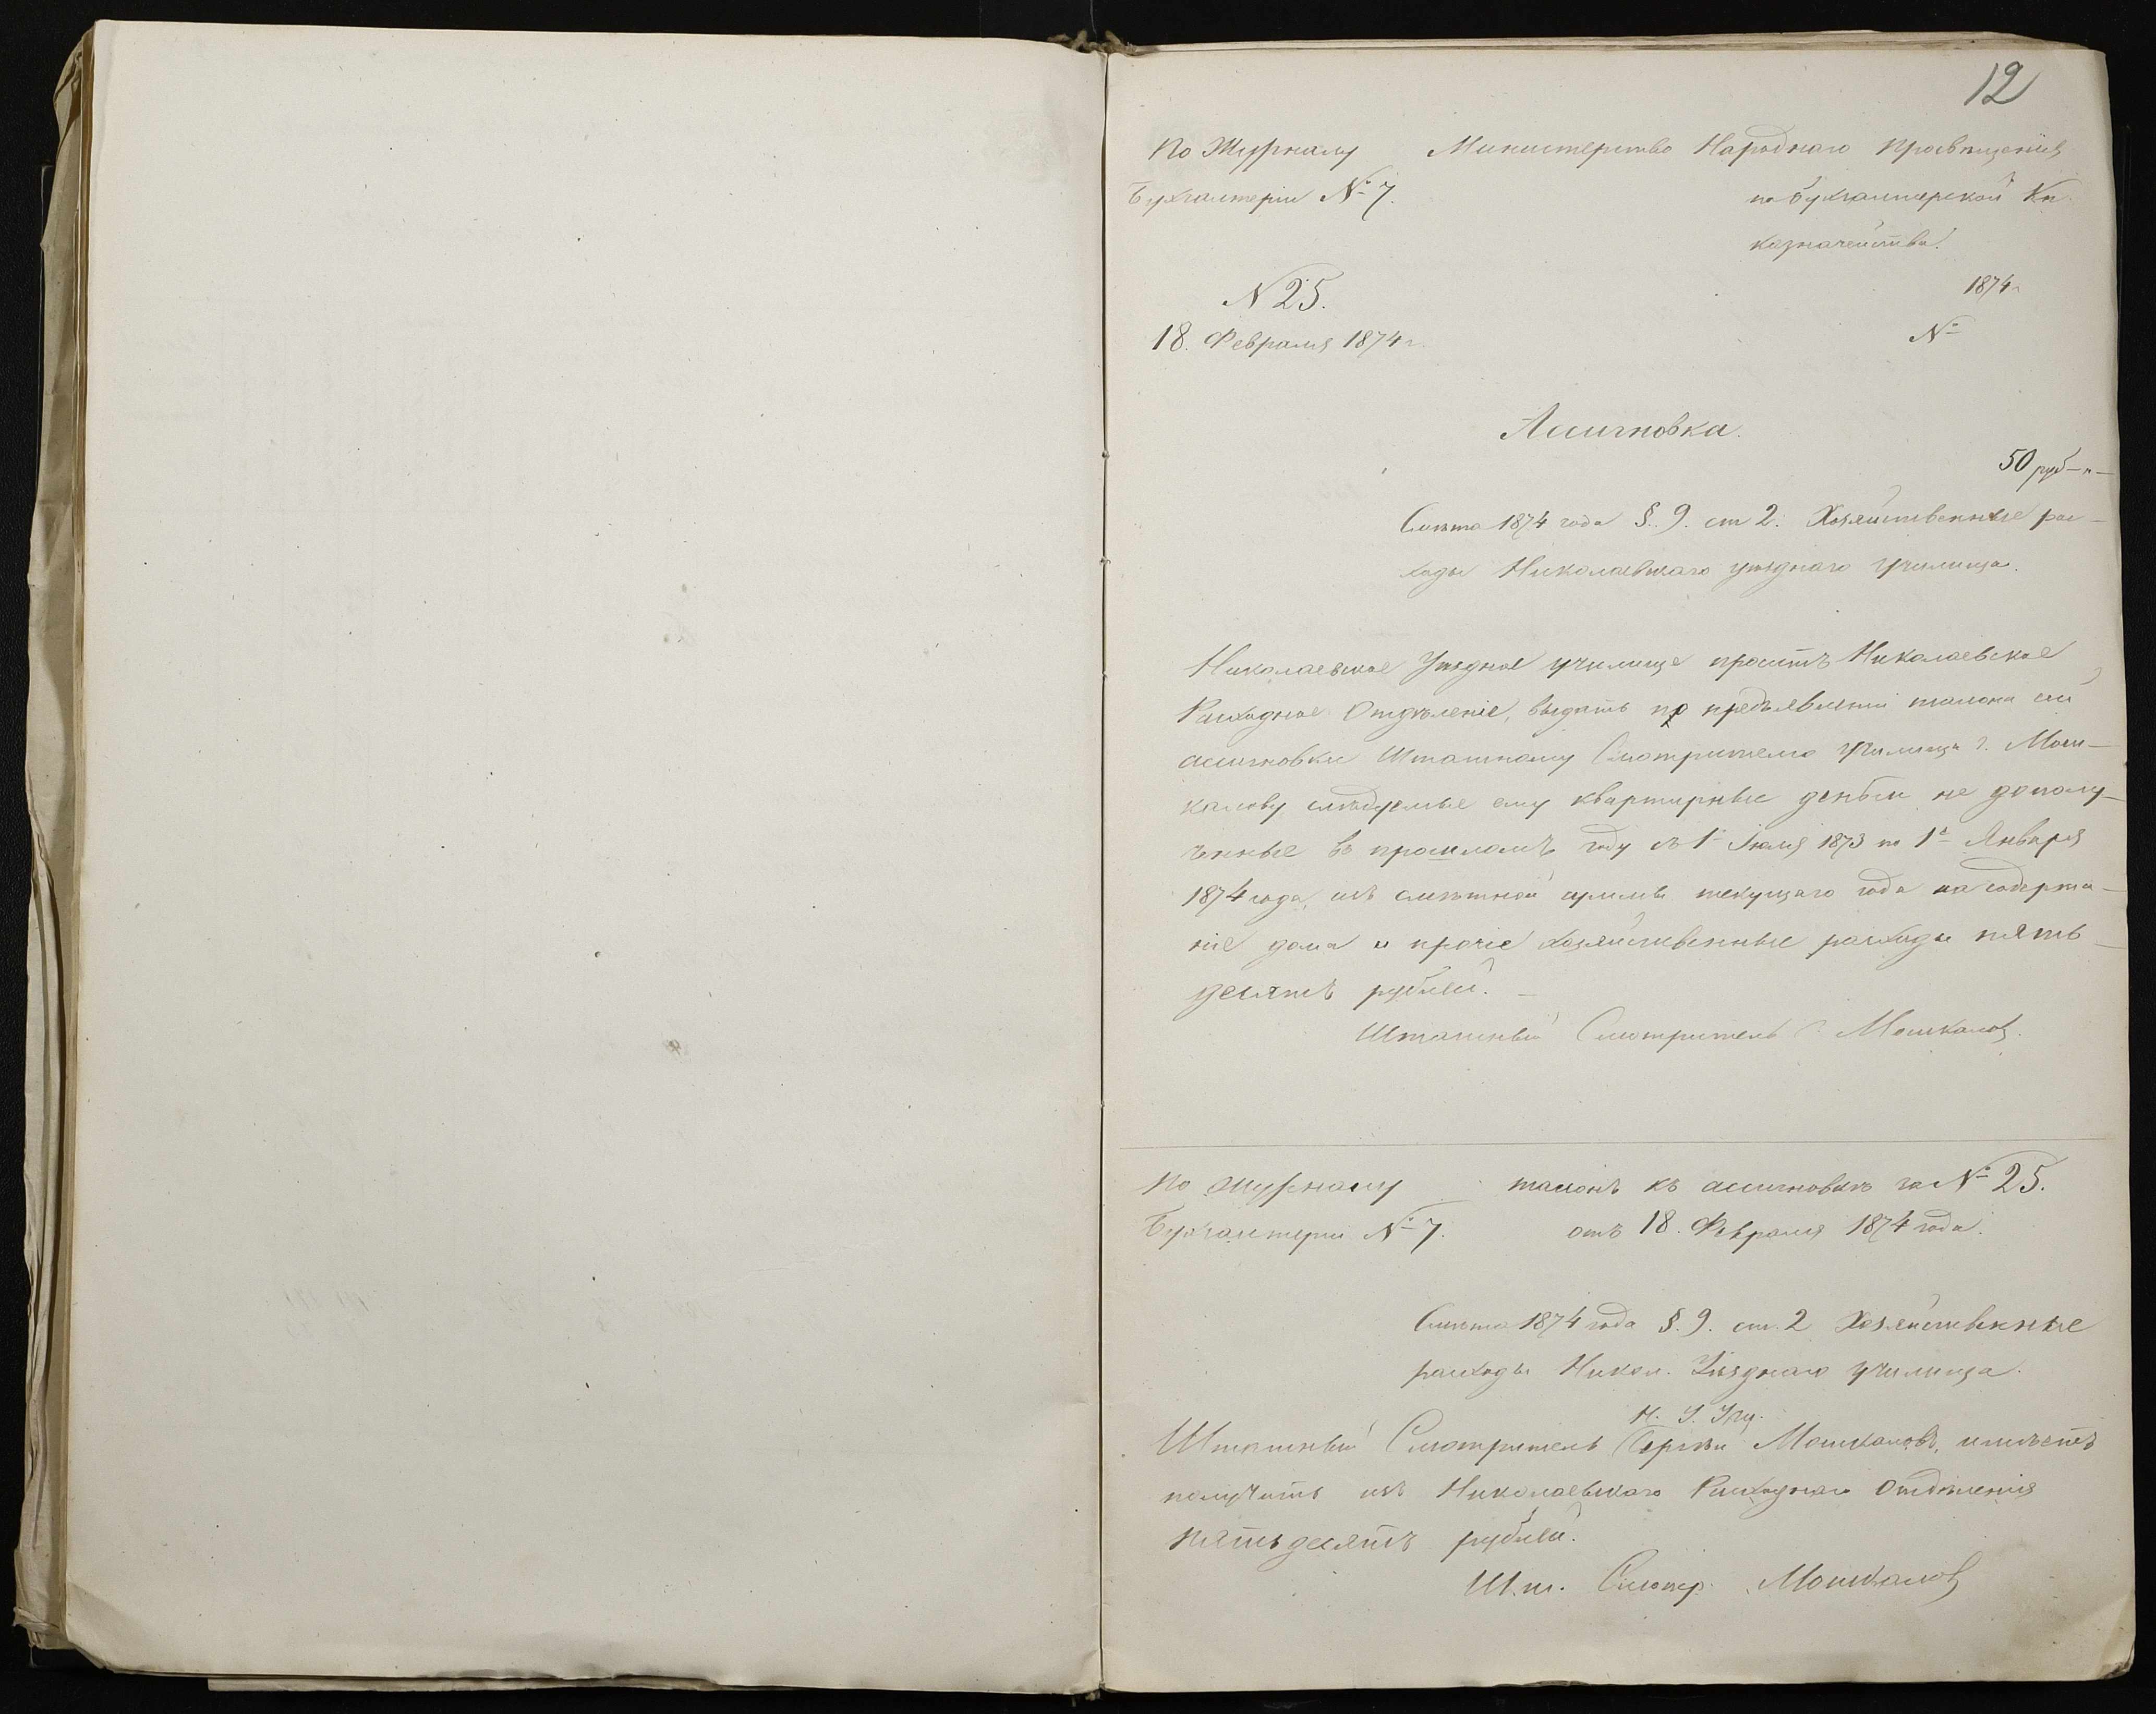 12
По Журналу Министерство Народнаго Просвѣщенія
Бухгалтеріи № 7. по бухгалтерской Кн.
казначейства.
1874 г
N 25.
18. Февраля 1874 г. №
Ассигновка.
50 руб – к –
Смѣта 1874 года §. 9. ст 2. Хозяйственные рас-
ходы Николаевскаго уѣзднаго училища.
Николаевское Уѣздное училище проситъ Николаевское
Расходное Отдѣленіе, выдать по предъявленіи талона сей
ассигновки Штатному Смотрителю училища г. Мош-
калову слѣдуемые ему квартирные деньги не дополу-
ченные въ прошломъ году съ 1 Іюля 1873 по 1е Января
1874 года, изъ смѣтной суммы текущаго года на содержа-
ніе дома и прочіе хозяйственные расходы пять-
десятъ рублей. –
Штатный Смотритель Мошкалов.
По журналу талонъ къ ассигновкѣ за № 25.
Бухгалтеріи № 7. отъ 18. Февраля 1874 года.
Смѣта 1874 года §. 9. ст. 2 Хозяйственные
расходы Никол. Уѣзднаго училища.
Н. У. Уч.
Штатный Смотритель Сергѣй Мошкаловъ, имѣетъ
получить изъ Николаевскаго Расходнаго Отдѣленія
пятьдесятъ рублей.
Шт. Смотр. Мошкалов